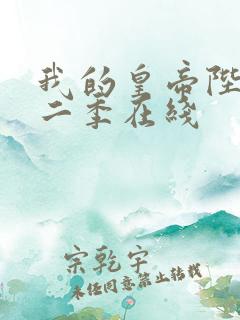 我的皇帝陛
二季在线
宗乾宇
未经同意禁止转载